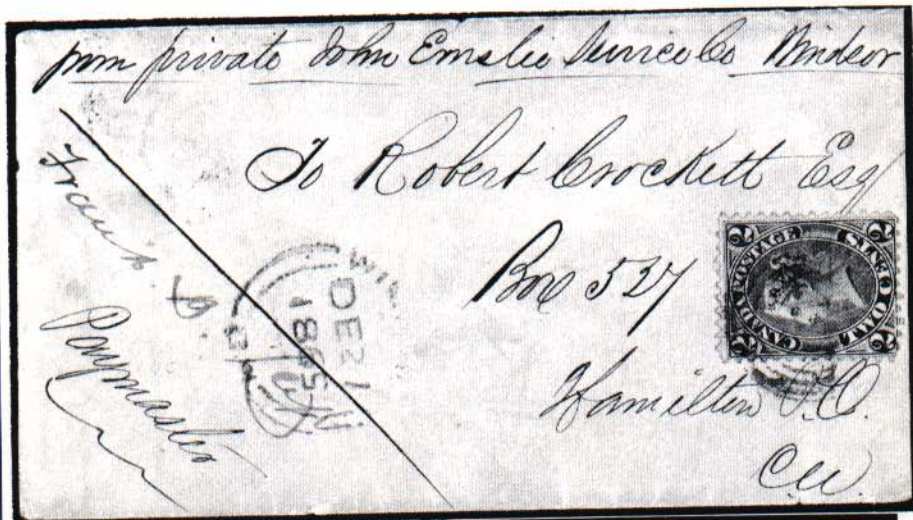 from private John Emslie Service Co Windsor
To Robert Crockett Esq
Box 527
Hamilton P.O.
C.W.
Frank
Paymaster
DE 21
1865
CANADA POSTAGE
TWO CENTS
2 2 2 2